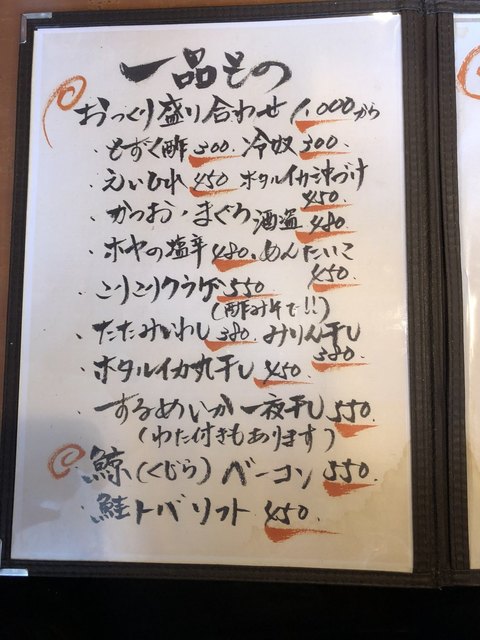 一品もの
おつくり盛り合わせ 1,000から
・もずく酢 300. 冷奴 300.
・えいひれ 450 ホタルイカ沖づけ 450.
・かつお・まぐろ 酒盗 480.
・ホヤの塩辛 480. めんたいこ 450.
・こりこりクラゲ 550
(酢みそで!!)
・たたみいわし 380. みりん干し 380.
・ホタルイカ丸干し 450.
・するめいか 一夜干し 550.
(わた付きもあります)
・鯨(くじら) ベーコン 550.
・鮭トバ ソフト 450.